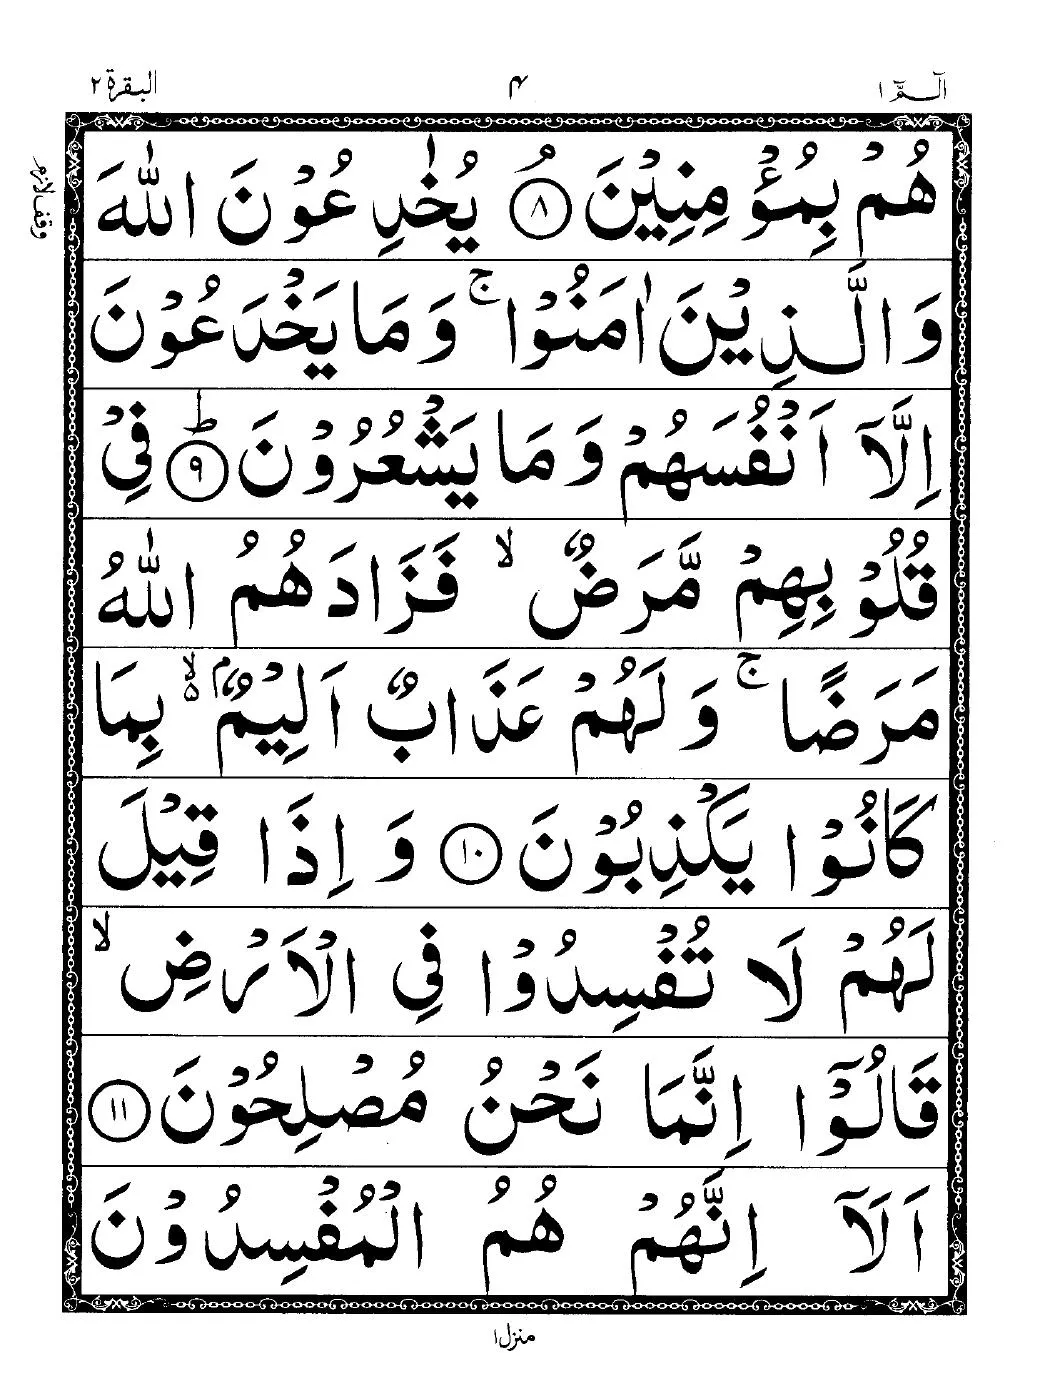 الٓمّٓ ١ ۴ البقرة ٢
هُمْ بِمُؤْمِنِيْنَ ۘ ٨ يُخٰدِعُوْنَ اللّٰهَ
وقف لازم
وَالَّذِيْنَ اٰمَنُوْا ۚ وَمَا يَخْدَعُوْنَ
اِلَّآ اَنْفُسَهُمْ وَمَا يَشْعُرُوْنَ ؕ ٩ فِيْ
قُلُوْبِهِمْ مَّرَضٌ ۙ فَزَادَهُمُ اللّٰهُ
مَرَضًا ۚ وَلَهُمْ عَذَابٌ اَلِيْمٌۢ ۙ۵ بِمَا
كَانُوْا يَكْذِبُوْنَ ١٠ وَاِذَا قِيْلَ
لَهُمْ لَا تُفْسِدُوْا فِي الْاَرْضِ ۙ
قَالُوْٓا اِنَّمَا نَحْنُ مُصْلِحُوْنَ ١١
اَلَآ اِنَّهُمْ هُمُ الْمُفْسِدُوْنَ
منزل ١